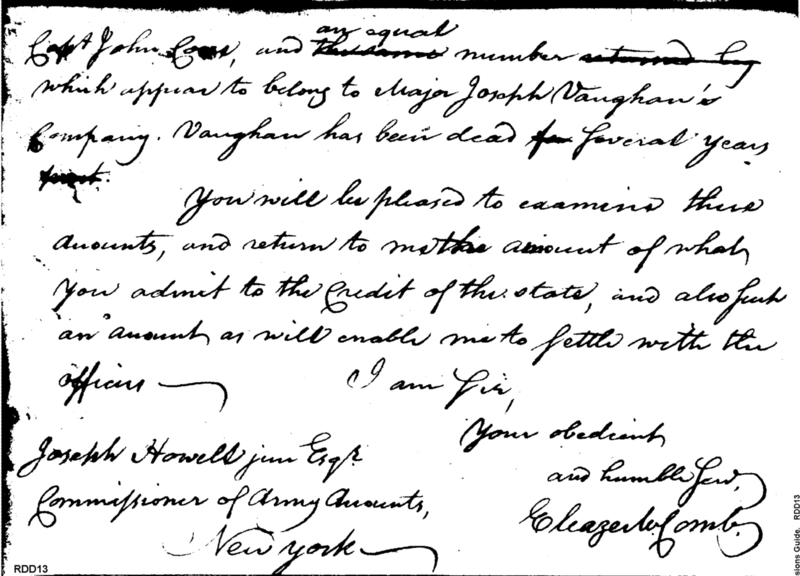 an equal
Capt John Coas, and the same number returned by
which appear to belong to Major Joseph Vaughan's
Company. Vaughan has been dead for several years
You will be pleased to examine these
Accounts, and return to me the amount of what
you admit to the Credit of the state, and also such
an account as will enable me to settle with the
officers — I am Sir,
Your obedient
and humble Serv,
Eleazer McComb.
Joseph Howell jun Esqr.
Commissioner of Army Accounts,
New York —
RDD13
sions Guide, RDD13